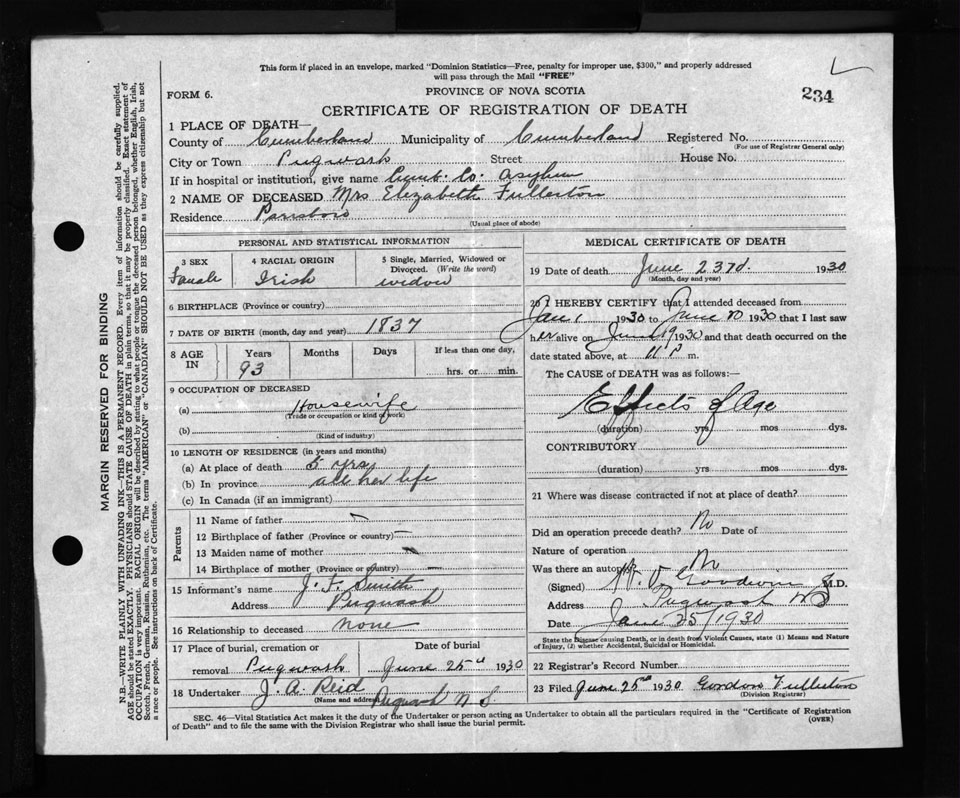 This form if placed in an envelope, marked "Dominion Statistics—Free, penalty for improper use, $300," and properly addressed
will pass through the Mail "FREE"
FORM 6.
PROVINCE OF NOVA SCOTIA
234
CERTIFICATE OF REGISTRATION OF DEATH
1 PLACE OF DEATH—
County of Cumberland Municipality of Cumberland Registered No.
(For use of Registrar General only)
City or Town Pugwash Street House No.
If in hospital or institution, give name Cumb. Co. Asylum
2 NAME OF DECEASED Mrs Elizabeth Fullerton
Residence Parrsboro
(Usual place of abode)
PERSONAL AND STATISTICAL INFORMATION
3 SEX 4 RACIAL ORIGIN 5 Single, Married, Widowed or Divorced. (Write the word)
Female Irish widow
6 BIRTHPLACE (Province or country)
7 DATE OF BIRTH (month, day and year) 1837
8 AGE IN Years Months Days If less than one day,
93 hrs. or min.
9 OCCUPATION OF DECEASED
(a) Housewife
(Trade or occupation or kind of work)
(b)
(Kind of industry)
10 LENGTH OF RESIDENCE (in years and months)
(a) At place of death 5 yrs
(b) In province all her life
(c) In Canada (if an immigrant)
Parents
11 Name of father —
12 Birthplace of father (Province or country) —
13 Maiden name of mother —
14 Birthplace of mother (Province or country) —
15 Informant's name J. F. Smith
Address Pugwash
16 Relationship to deceased none
17 Place of burial, cremation or removal Pugwash
Date of burial June 25th 1930
18 Undertaker J. A. Reid
(Name and address) Pugwash N. S.
MEDICAL CERTIFICATE OF DEATH
19 Date of death June 23rd. 1930
(Month, day and year)
20 I HEREBY CERTIFY that I attended deceased from
Jan 1 1930 to June 1930 that I last saw
her alive on June 19 1930 and that death occurred on the
date stated above, at m.
The CAUSE of DEATH was as follows:—
Effects of Age
(duration) yrs mos dys.
CONTRIBUTORY
(duration) yrs mos dys.
21 Where was disease contracted if not at place of death?
Did an operation precede death? No Date of
Nature of operation
Was there an autopsy? No
(Signed) Goodwin M.D.
Address Pugwash NS
Date 25/1930
State the Disease causing Death, or in death from Violent Causes, state (1) Means and Nature
of Injury, (2) whether Accidental, Suicidal or Homicidal.
22 Registrar's Record Number
23 Filed June 25th 1930 Gordon Fullerton
(Division Registrar)
SEC. 46—Vital Statistics Act makes it the duty of the Undertaker or person acting as Undertaker to obtain all the particulars required in the "Certificate of Registration
of Death" and to file the same with the Division Registrar who shall issue the burial permit.
(OVER)
MARGIN RESERVED FOR BINDING
N.B.—WRITE PLAINLY WITH UNFADING INK—THIS IS A PERMANENT RECORD. Every item of information should be carefully supplied.
AGE should be stated EXACTLY. PHYSICIANS should STATE CAUSE OF DEATH in plain terms, so that it may be properly classified. Exact statement of
OCCUPATION is very important. RACIAL ORIGIN will be described by stating to what people or tongue the deceased person belonged, whether English, Irish,
Scotch, French, German, Russian, Ruthenian, etc. The terms "AMERICAN" or "CANADIAN" SHOULD NOT BE USED as they express citizenship but not
a race or people. See instructions on back of Certificate.